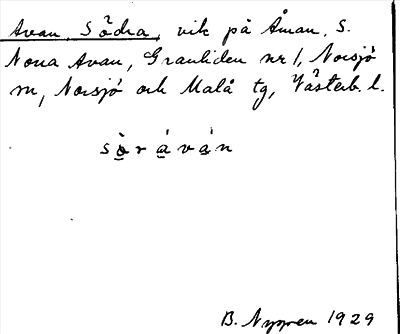 Avan, Södra, vik på Åman, S.
Norra Avan, Granliden nr 1, Norsjö
sn, Norsjö och Malå tg, Västerb. l.
sòràvàn
B. Nygren 1929